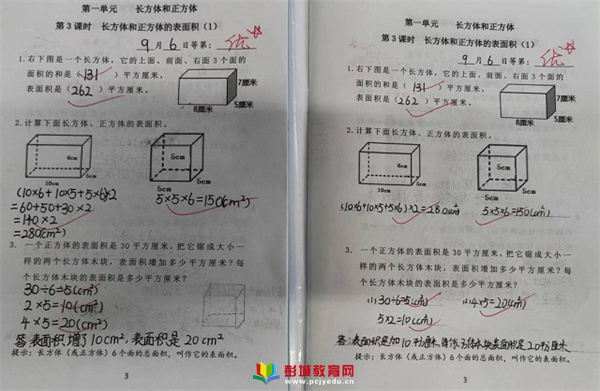 第一单元 长方体和正方体
第3课时 长方体和正方体的表面积（1）
9月6日等第：优
1.右下图是一个长方体，它的上面、前面、右面3个面
面积的和是（131）平方厘米，
表面积是（262）平方厘米。
7厘米
5厘米
8厘米
2.计算下面长方体、正方体的表面积。
6cm
5cm
10cm
5cm
5cm
5cm
(10×6+10×5+5×6)×2
=60+50+30×2
=140×2
=280(cm²)
5×5×6=150(cm²)
3. 一个正方体的表面积是30平方厘米，把它锯成大小一
样的两个长方体木块，表面积增加多少平方厘米？每
个长方体木块的表面积是多少平方厘米？
30÷6=5(cm²)
2×5=10(cm²)
4×5=20(cm²)
答：表面积增了10cm²，表面积是20cm²
提示：长方体（或正方体）6个面的总面积，叫作它的表面积。
3
第一单元 长方体和正方体
第3课时 长方体和正方体的表面积（1）
9月6日等第：优
1.右下图是一个长方体，它的上面、前面、右面3个面
面积的和是（131）平方厘米，
表面积是（262）平方厘米。
7厘米
5厘米
8厘米
2.计算下面长方体、正方体的表面积。
6cm
5cm
10cm
5cm
5cm
5cm
(10×6+10×5+5×6)×2=280(cm²)
5×5×6=150(cm²)
3. 一个正方体的表面积是30平方厘米，把它锯成大小一
样的两个长方体木块，表面积增加多少平方厘米？每
个长方体木块的表面积是多少平方厘米？
(1) 30÷6=5(cm²)
(2) 4×5=20(cm²)
5×2=10(cm²)
答：表面积增加10平方厘米，长方体木块表面积是20平方厘米
提示：长方体（或正方体）6个面的总面积，叫作它的表面积。
3
彭城教育网
www.pcjyedu.com